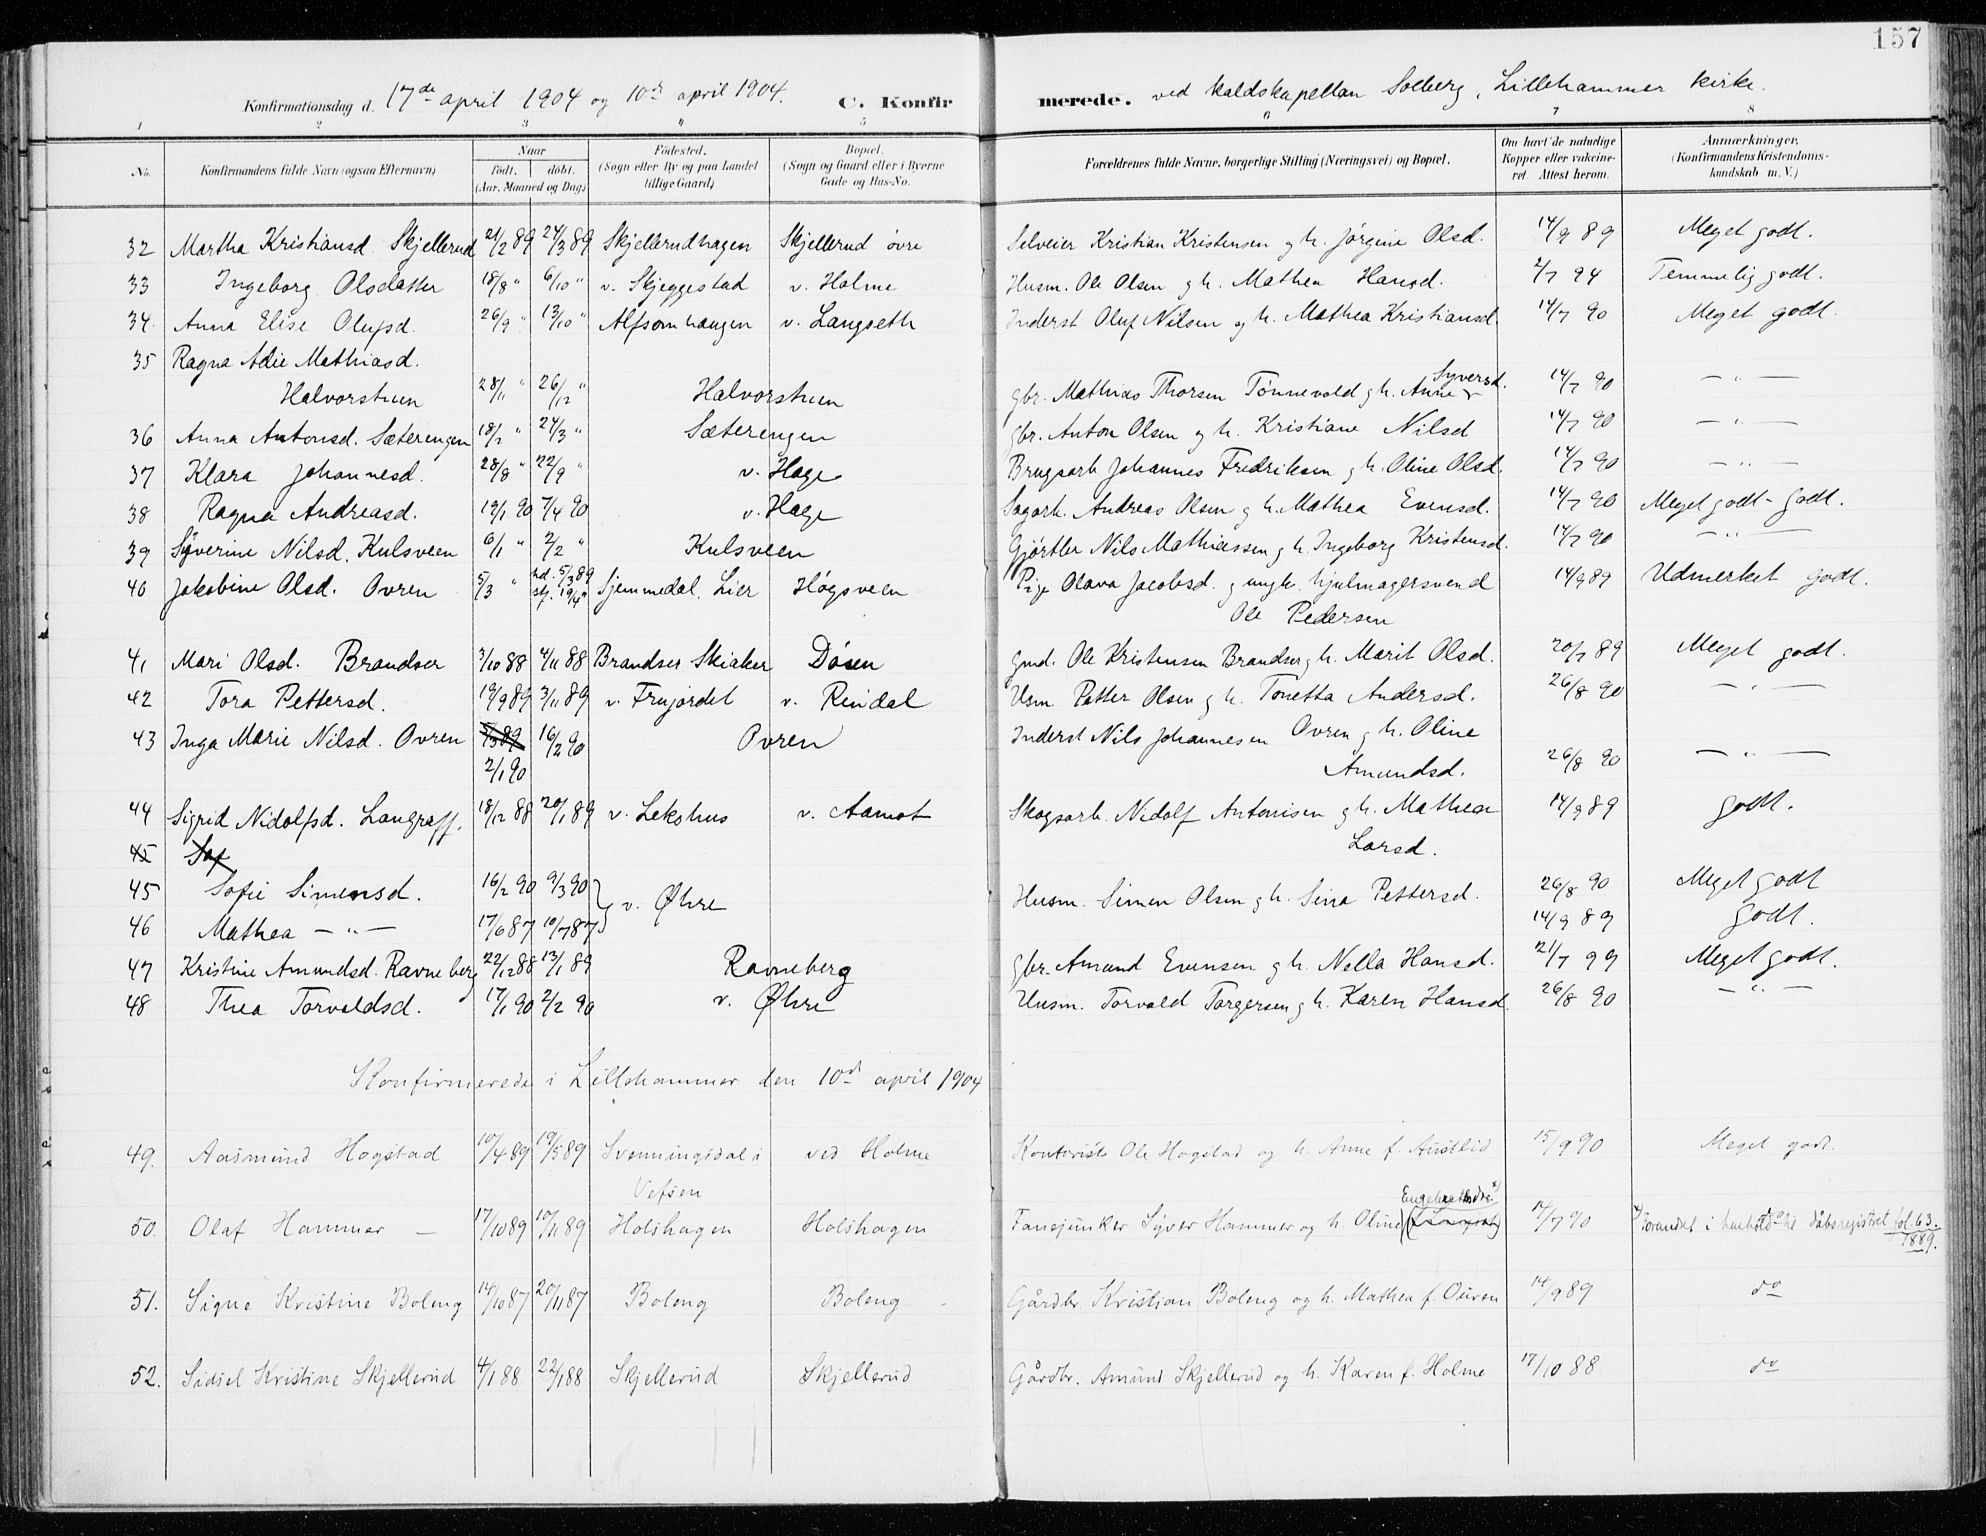 157
Konfirmationsdag d. 17de april 1904 og 10de april 1904. C. Konfirmerede. ved kaldskapellan Solberg, Lillehammer kirke.
1 2 3 4 5 6 7 8
No. Konfirmandens fulde Navn (ogsaa Efternavn) Naar født. døbt. (Aar, Maaned og Dag) Fødested. (Sogn eller By og paa Landet tillige Gaard) Bopæl. (Sogn og Gaard eller i Byerne Gade og Hus-No. Forældrenes fulde Navne, borgerlige Stilling (Næringsvei) og Bopæl. Om havt de naturlige Kopper eller vaccineret. Attest herom. Anmærkninger. (Konfirmandens Kristendomskundskab m. V.)
32 Martha Kristiansd. Skjellerud 21/2 89 24/3 89 Skjellerudhagen Skjellerud øvre Selveier Kristian Kristensen og h. Jørgine Olsd. 14/9 89 Meget godt.
33 Ingeborg Olsdatter 18/8 " 6/10 " v. Skjeggestad v. Holme Husm. Ole Olsen og h. Mathea Hansd. 2/7 94 Temmelig godt.
34. Anna Elise Olufsd. 26/9 " 13/10 " Alfsomhaugen v. Langseth Inderst Oluf Nilsen og h. Mathea Kristiansd. 14/7 90 Meget godt.
35 Ragna Adie Mathiasd.
Halvorstuen 28/11 " 26/12 " Halvorstuen Gbr. Mathias Thorsen Tønnevold og h. Anne Syversd. 14/7 90 — " —
36 Anna Antonsd. Sæterengen 18/2 " 24/3 " Sæterengen Gbr. Anton Olsen og h. Kristiane Nilsd 14/7 90 — " —
37 Klara Johannesd. 28/8 " 22/9 " v. Hage Brugsarb. Johannes Fredriksen og h. Oline Olsd. 14/7 90 — " —
38 Ragna Andreasd. 19/1 90 7/4 90 v. Hage Sagarb. Andreas Olsen og h. Mathea Evensd. 14/7 90 Meget godt - godt.
39 Syverine Nilsd. Kulsveen 6/1 " 2/2 " Kulsveen Gjørtler Nils Mathiassen og h. Ingeborg Kristensd. 14/7 90 — " —
40 Jakobine Olsd. Ovren 5/3 " hd. 5/3 89 stf. 19/4 " Sjemmedal, Lier Høgsveen Pige Olava Jacobsd. og ungk. hjulmagersvend 14/9 89 Udmerket godt.
Ole Pedersen
41 Mari Olsd. Brandser 3/10 88 4/11 88 Brandser Skiaker Døsen Gmd. Ole Kristensen Brandser og h. Marit Olsd. 20/7 89 Meget godt.
42 Tora Pettersd. 19/9 89 3/11 89 v. Frujordet v. Rindal Husm Petter Olsen og h. Tonetta Andersd. 26/8 90 — " —
43 Inga Marie Nilsd. Ovren 5/3 89 16/2 90 Ovren Inderst Nils Johannesen Ovren og h. Oline
2/1 90 Amundsd. 26/8 90 — " —
44 Sigrid Nidolfsd. Langraff. 18/12 88 20/1 89 v. Lekshus v. Aamot Skogsarb. Nidolf Antonisen og h. Mathea 14/9 89 godt.
Larsd.
45 Sof
45 Sofie Simensd. 16/2 90 9/3 90 v. Øhre Husm. Simen Olsen og h. Sina Pettersd. 26/8 90 Meget godt
46 Mathea — " — 17/6 87 10/7 87 14/9 89 godt.
47 Kristine Amundsd. Ravneberg 22/12 88 13/1 89 Ravneberg Gbr. Amund Evensen og h. Nella Hansd. 21/7 99 Meget godt.
48 Thea Torvaldsd. 17/1 90 2/2 90 v. Øhre Husm. Torvald Torgersen og h. Karen Hansd. 26/8 90 — " —
Konfirmerede i Lillehammer den 10de april 1904
49. Aasmund Hogstad 10/4 89 19/5 89 Svenningsdal i ved Holme Kontorist Ole Hogstad og h. Anne f. Austlid 15/9 90 Meget godt.
Vefsen
50. Olaf Hammer — 17/10 89 10/11 89 Holshagen Holshagen Fanejunker Syver Hammer og h. Oline Engebretsdtr. x) 14/7 90 x) Forandret i henhold til dåbsregistret fol. 63. 1889.
51. Signe Kristine Boleng 14/10 87 20/11 87 Boleng Boleng Gårdbr. Kristian Boleng og h. Mathea f. Ouren 14/9 89 do
52. Sidsel Kristine Skjellerud 4/1 88 22/1 88 Skjellerud Skjellerud Gårdbr. Amund Skjellerud og h. Karen f. Holme 17/10 88 do